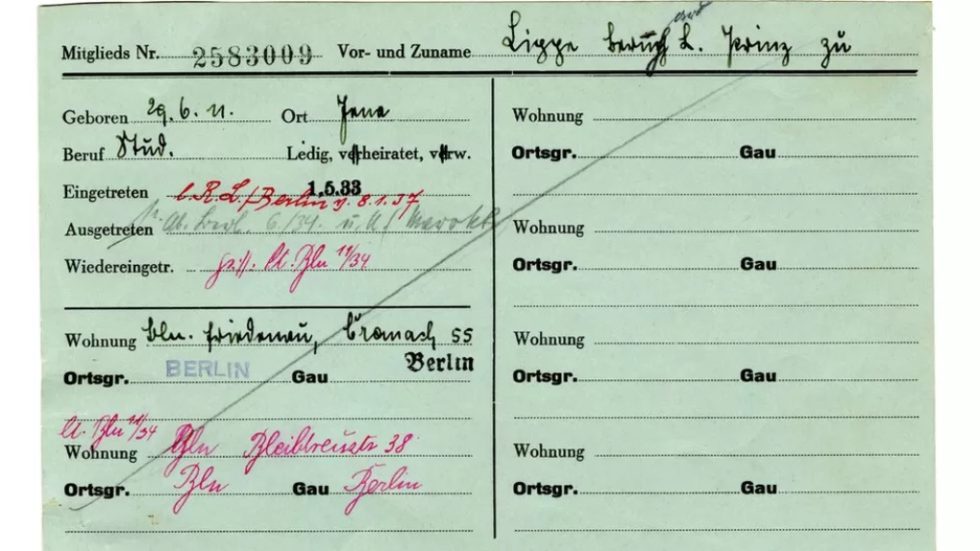 Mitglieds Nr. 2583009 Vor- und Zuname Lippe L. Prinz zu
Geboren 29. 6. 11. Ort Jena
Beruf Stud. Ledig, verheiratet, verw.
Eingetreten 1.5.33
Berlin 8.1.37
Ausgetreten 6/34. u.
Wiedereingetr. lt. Bln 11/34
Wohnung Bln. Friedenau, 55
Ortsgr. BERLIN Gau Berlin
lt. Bln 11/34
Wohnung Bln Bleibtreustr 38
Ortsgr. Bln Gau Berlin
Wohnung
Ortsgr. Gau
Wohnung
Ortsgr. Gau
Wohnung
Ortsgr. Gau
Wohnung
Ortsgr. Gau